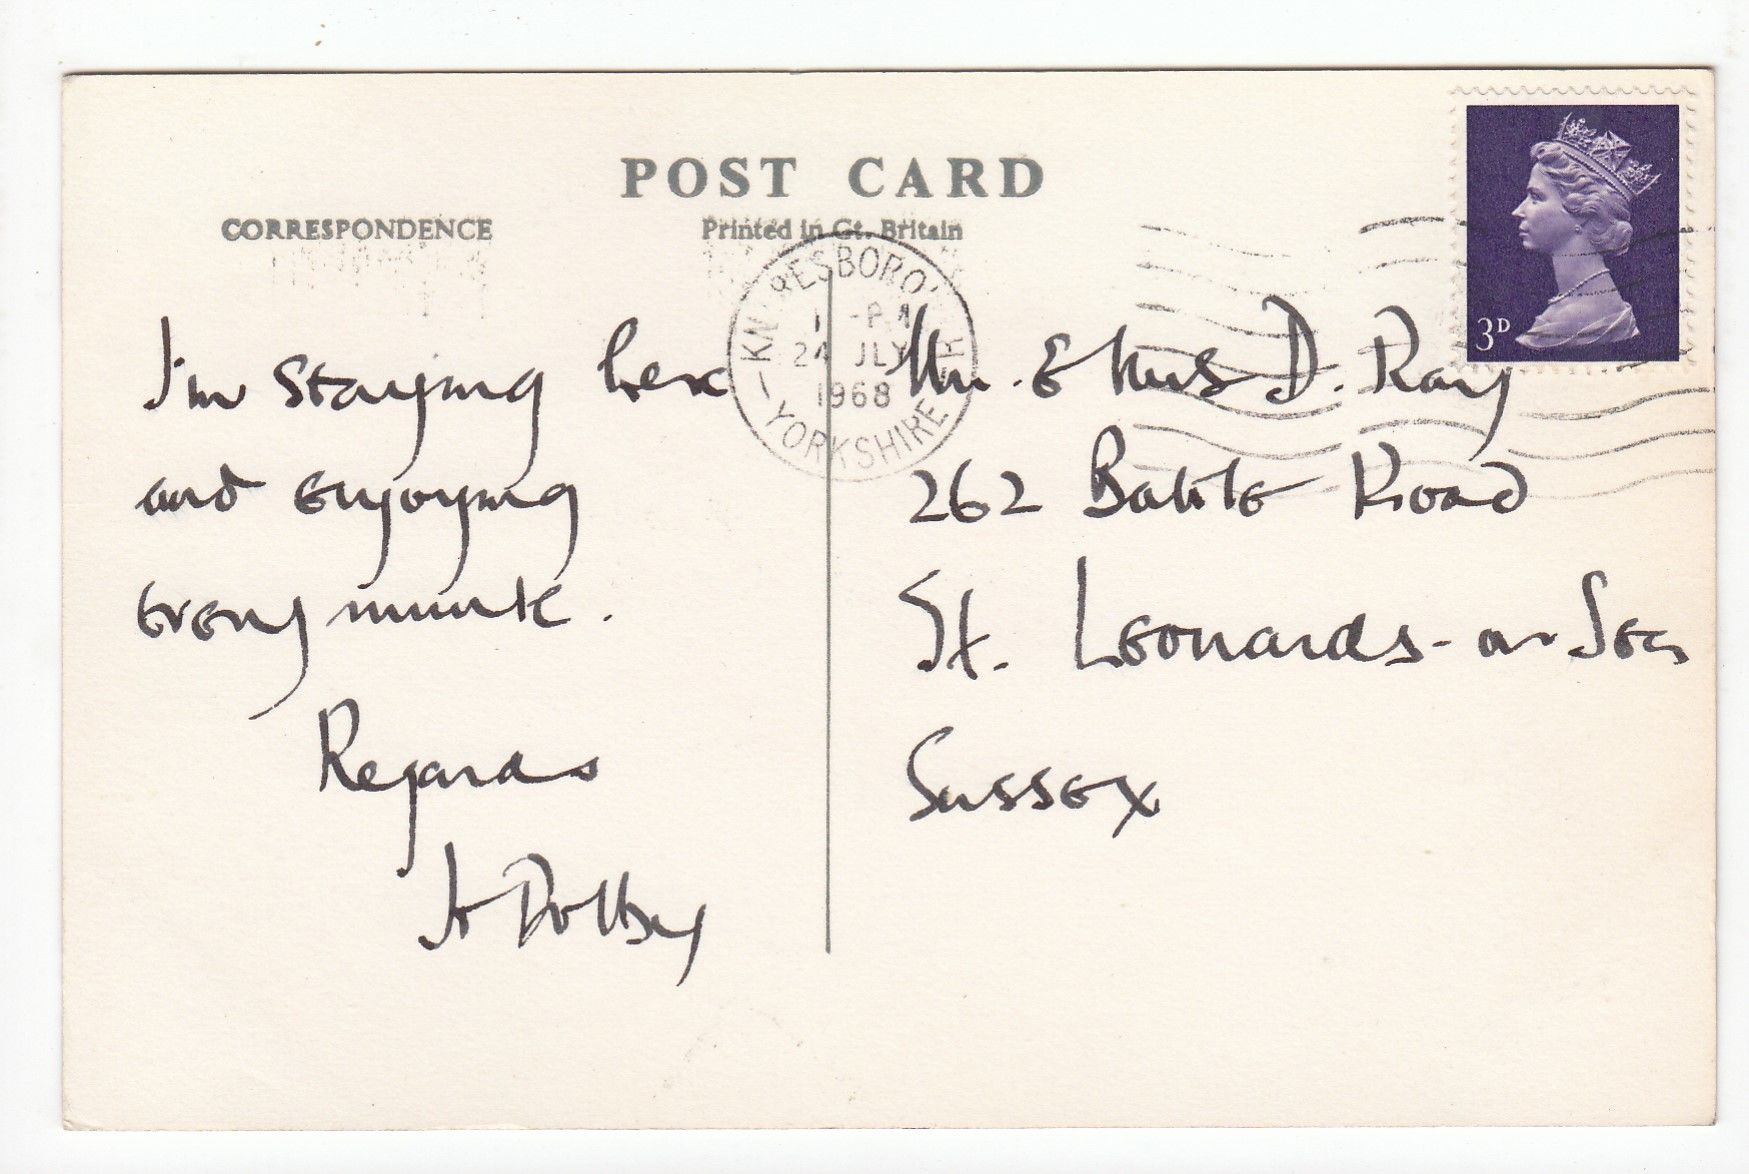 POST CARD
CORRESPONDENCE
Printed in Gt. Britain
KNARESBOROUGH
-PM
24 JLY
1968
YORKSHIRE
3D
I'm staying here
and enjoying
every minute.
Regards
Jo Dolby
Mr. & Mrs D. Ray
262 Battle Road
St. Leonards-on-Sea
Sussex